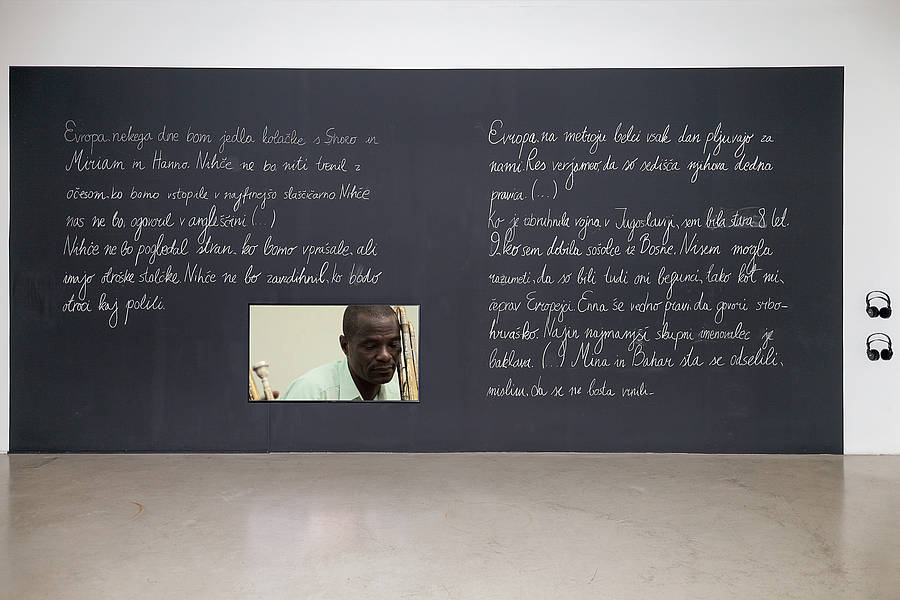 Evropa, nekega dne bom jedla kolačke s Shoro in
Miriam in Hanno. Nihče ne bo niti trenil z
očesom, ko bomo vstopile v najfinejšo slaščičarno. Nihče
nas ne bo ogovoril v angleščini (...)
Nihče ne bo pogledal stran, ko bomo vprašale, ali
imajo otroške stolčke. Nihče ne bo zavzdihnil, ko bodo
otroci kaj polili.
Evropa, na metroju belci vsak dan pljuvajo za
nami. Res verjamejo, da so sedišča njihova dedna
pravica. (...)
Ko je izbruhnila vojna v Jugoslaviji, sem bila stara 8 let.
In ko sem dobila sošolce iz Bosne. Nisem mogla
razumeti, da so bili tudi oni begunci, tako kot mi,
čeprav Evropejci. Enna še vedno pravi, da govori srbo-
hrvaško. Najin najmanjši skupni imenovalec je
baklava. (...) Mina in Bahar sta se odselili,
mislim, da se ne bosta vrnili.